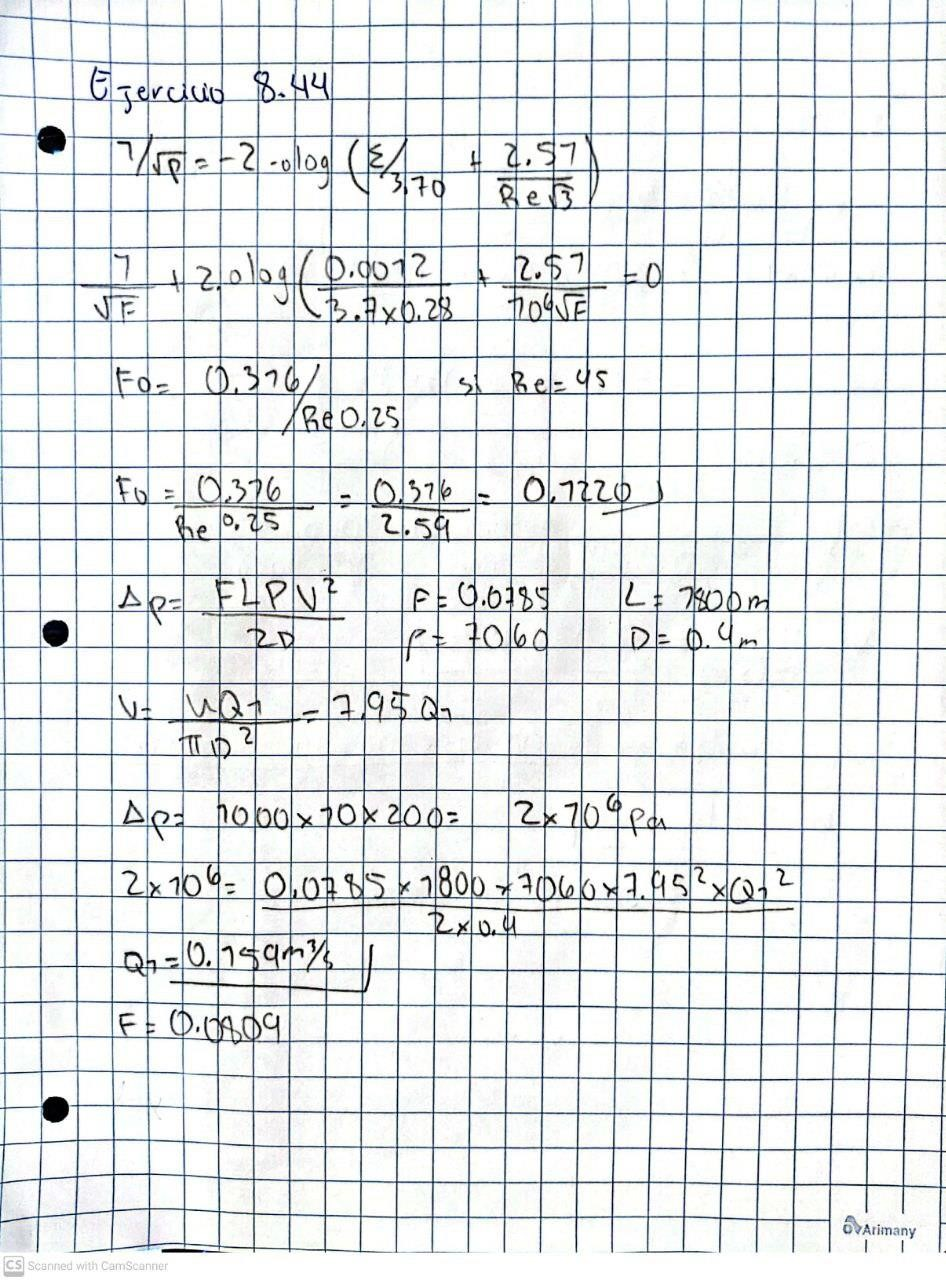 Ejercicio 8.44
1/√f = -2.0log (ε/3.70 + 2.51/Re√3)
1/√F + 2.0log (0.0012/3.7x0.28 + 2.51/10⁶√F = 0
Fo= 0.316/Re0.25 si Re= 45
Fo = 0.316/Re^0.25 = 0.316/2.59 = 0.1220
Δp= FLPV²/2D F= 0.0185 L= 1800m
ρ= 1060 D= 0.4m
V= 4Q1/πD² = 7.95 Q1
Δp= 1000x10x200= 2x10⁶ Pa
2x10⁶= 0.0185x1800x1060x7.95²xQ1²/2x0.4
Q1= 0.159m³/s
F= 0.0809
Arimany
CS Scanned with CamScanner